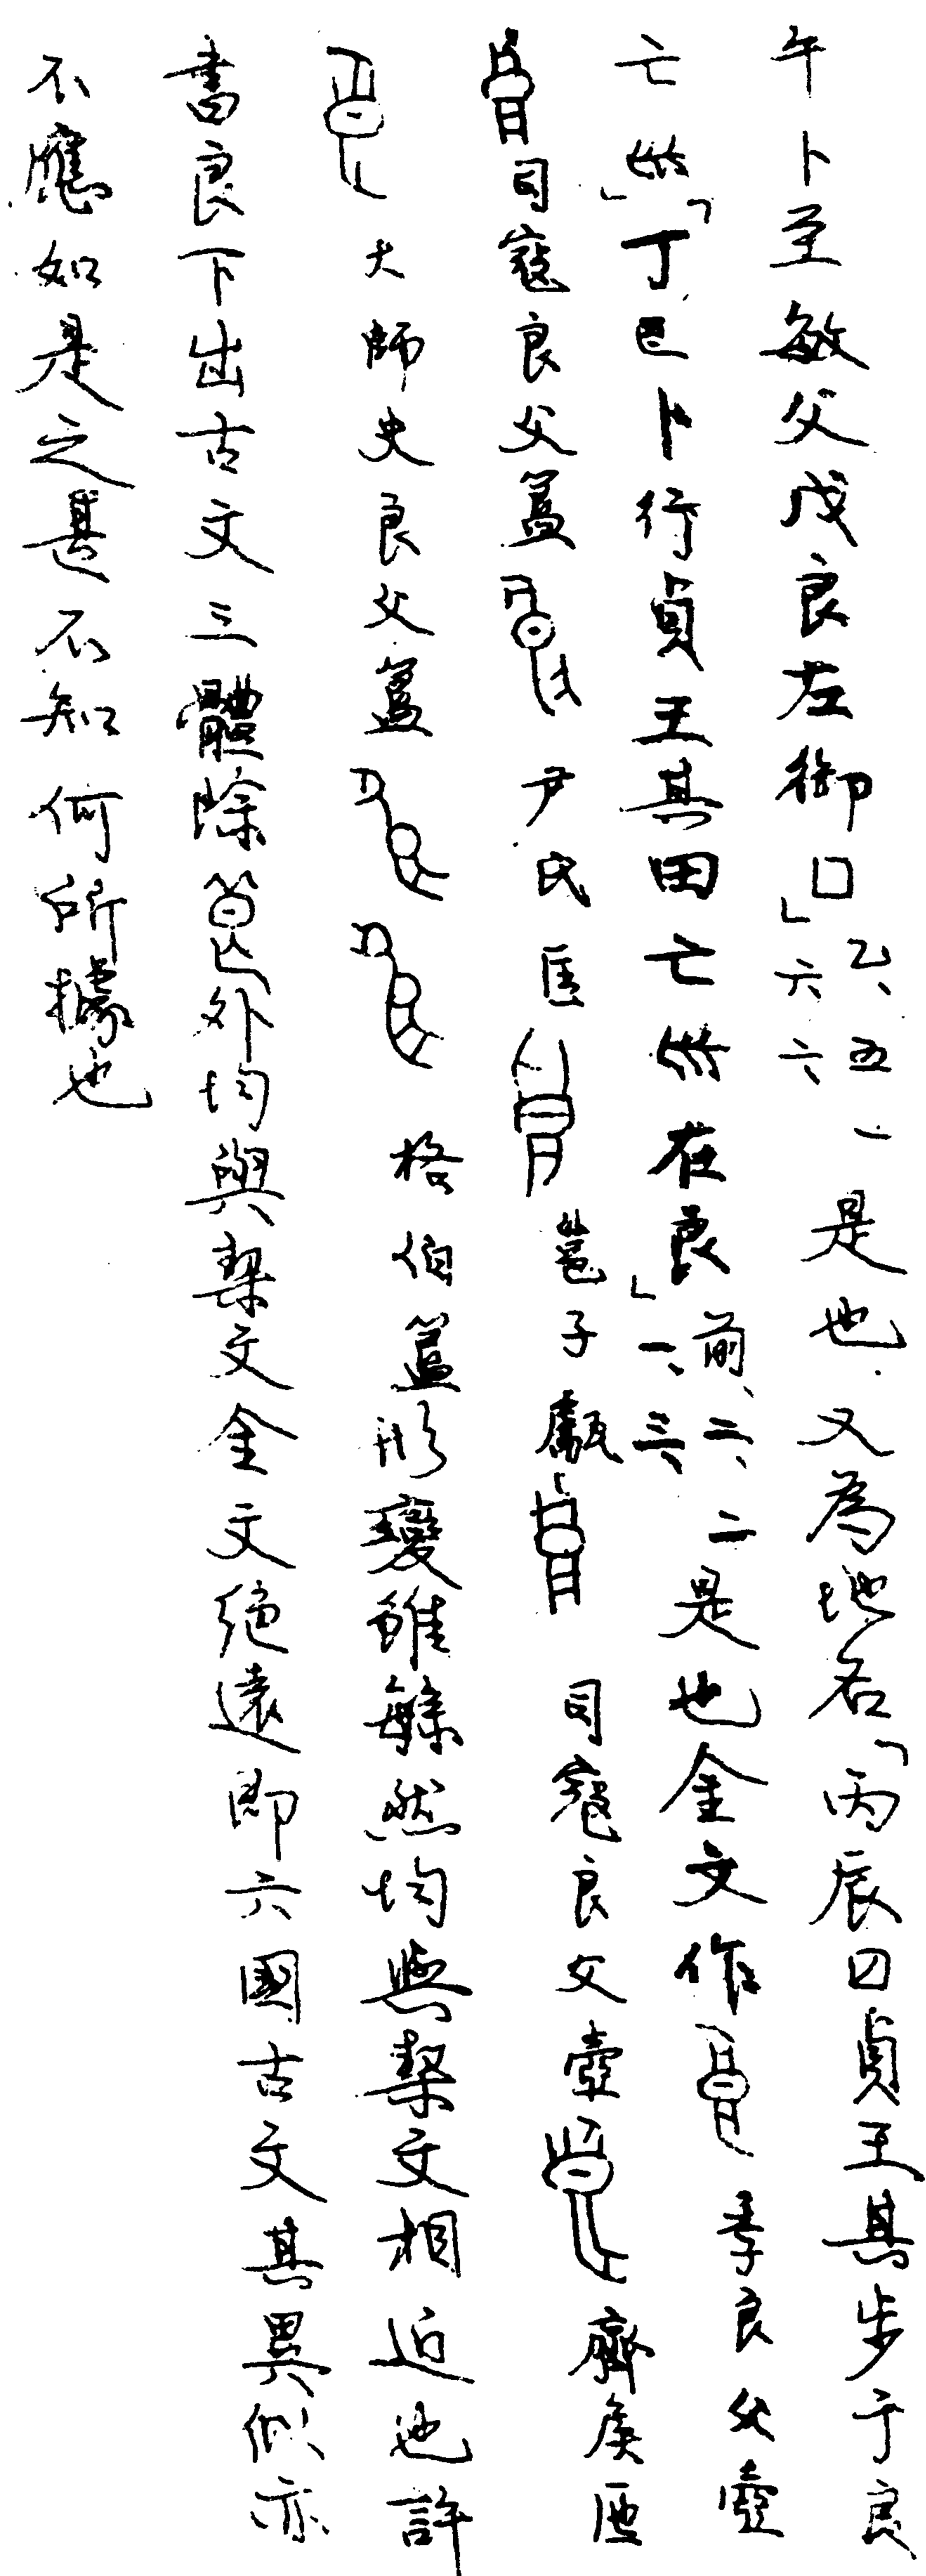 午卜至敏父戊良左御口」乙、五一六六是也又為地名「丙辰囗貞王其步于良
亡𡿧」「丁巳卜行貞王其田亡𡿧在良」前、六、二一、三、二是也金文作季良父壺
司寇良父簋尹氏匡邕子甗司寇良父壺齊侯匜
大師史良父簋格伯簋形變雖緐然均與栔文相近也許
書良下出古文三體除𥃩外均與栔文金文絕遠即六國古文其異似亦
不應如是之甚不知何所據也